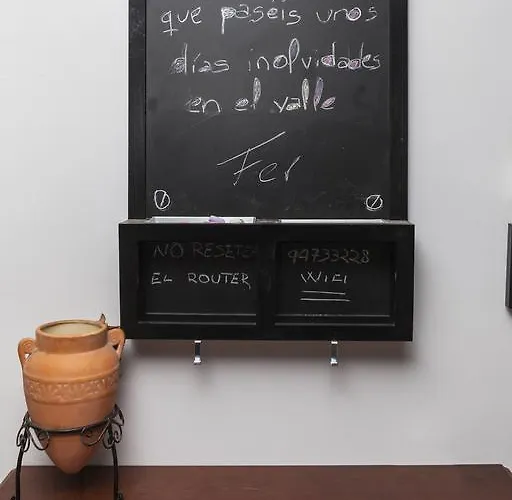 que paseis unos
días inolvidables
en el valle
Fer
NO RESETEA
EL ROUTER
94733228
WIFI